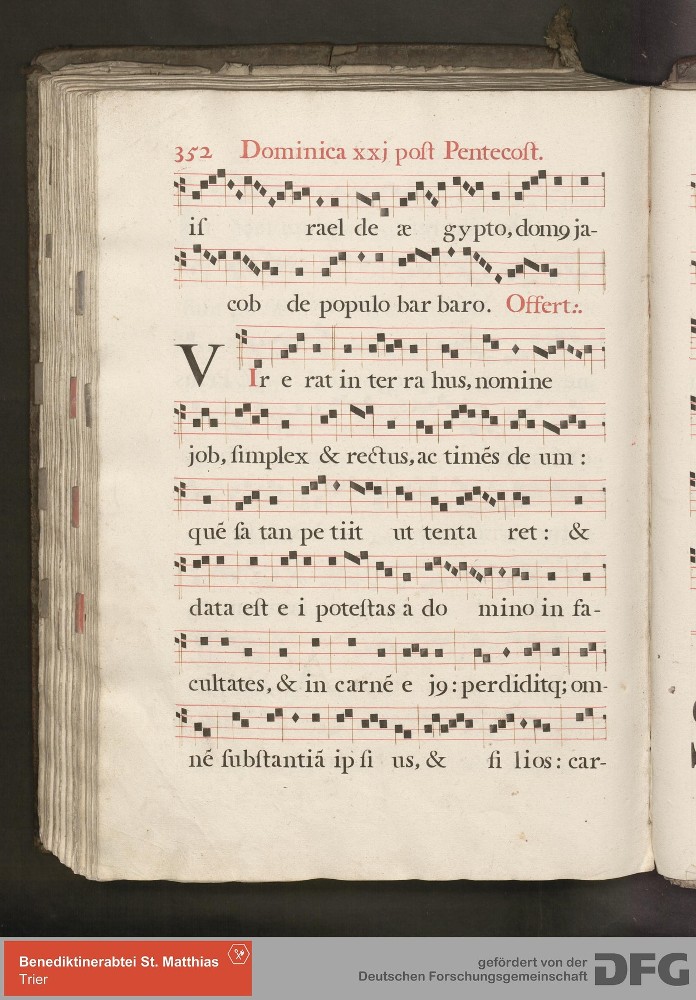 352 Dominica xxj poſt Pentecoſt.
iſ rael de æ gypto, domꝯ ja-
cob de populo bar baro. Offert:.
VIr e rat in ter ra hus, nomine
job, ſimplex & rectus, ac timēs de um :
quē ſa tan pe tiit ut tenta ret : &
data eſt e i poteſtas à do mino in fa-
cultates, & in carnē e jꝯ : perdiditq; om-
nē ſubſtantiā ip ſi us, & fi lios : car-
Benediktinerabtei St. Matthias
Trier
gefördert von der
Deutschen Forschungsgemeinschaft DFG